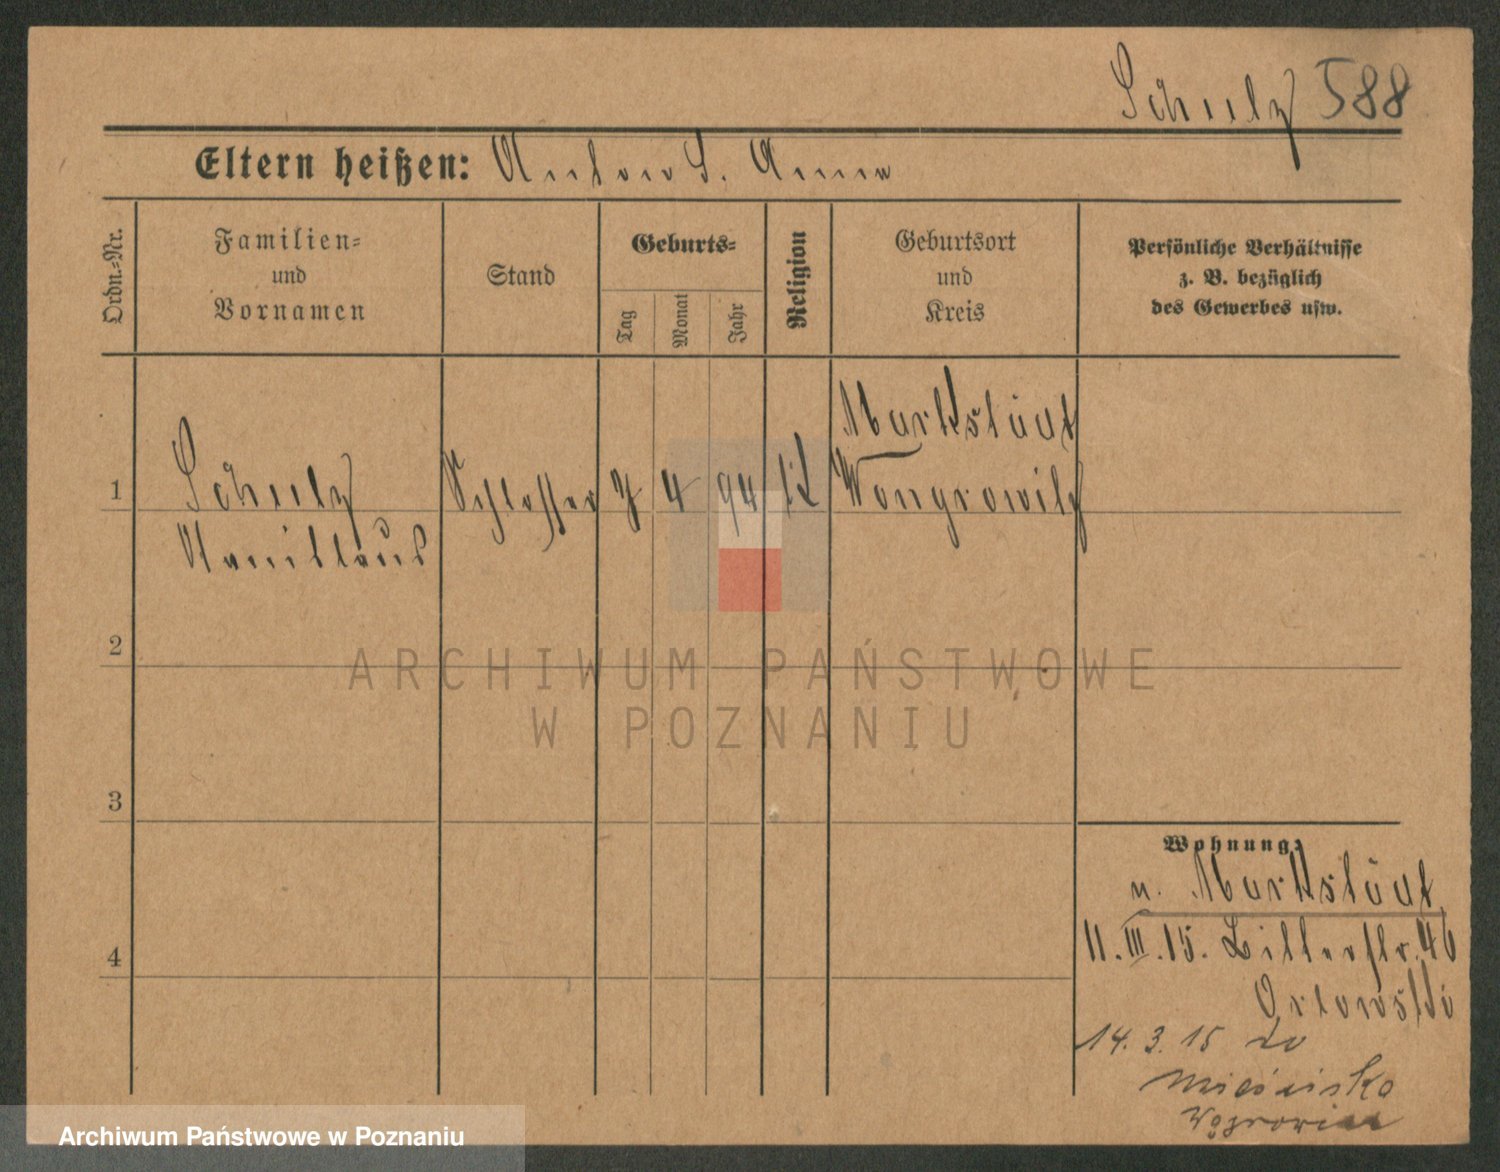 Schulz 588
Eltern heißen: Anton S. Anna
Ordn.=Nr.
Familien=
und
Vornamen
Stand
Geburts=
Tag
Monat
Jahr
Religion
Geburtsort
und
Kreis
Persönliche Verhältnisse
z. B. bezüglich
des Gewerbes usw.
1
Schulz
Stanislaus
Schlosser
7
4
94
k
Markstädt
Wongrowitz
2
3
4
Wohnung:
n. Markstädt
11.III.15. Bitterstr. 46
Orlowski
14.3.15 do
Mieścisko
ARCHIWUM PAŃSTWOWE
W POZNANIU
Archiwum Państwowe w Poznaniu